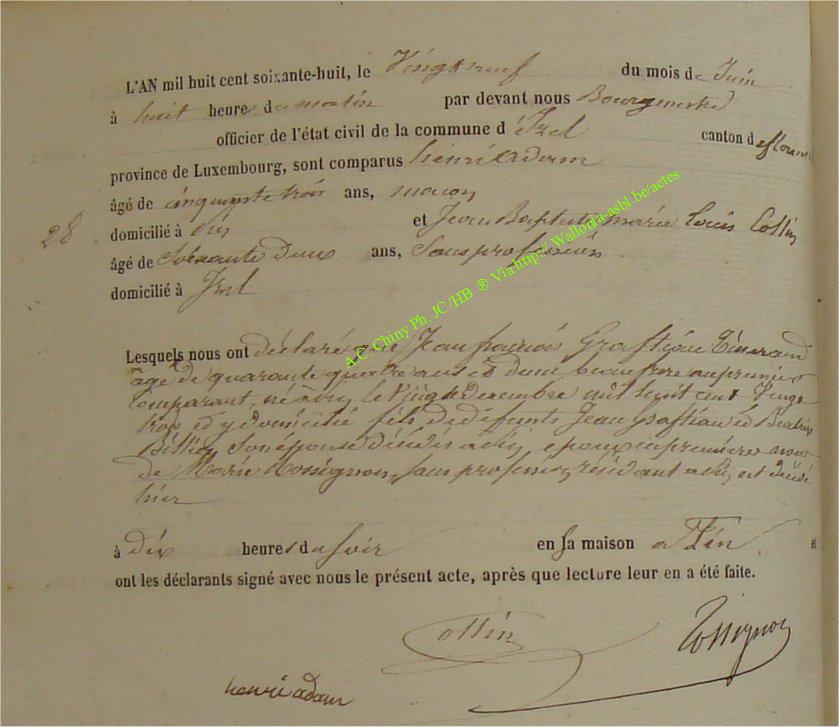 L'AN mil huit cent soixante-huit, le Vingt neuf du mois de Juin
à huit heure du matin par devant nous Bourgmestre
officier de l'état civil de la commune d'Izel canton de
province de Luxembourg, sont comparus henri adam
âgé de cinquante trois ans, maçon
28 domicilié à et Jean Baptiste marie Louis Collin
âgé de Soixante deux ans, Sans profession
domicilié à Izel
A.C. Chiny Ph. JC/HB ® Via http:// Wallonia-asbl.be/actes
Lesquels nous ont déclaré que Jean françois
âgé de quarante quatre ans et demi, beau frere au premier
comparant, né le decembre mil huit cent Vingt
trois et y domicilié fils de defunts Jean et
Son épouse décédés époux en premières
de Marie Rossignon, Sans profession résidant est décédé
hier
à dix heures du Soir en Sa maison a et
ont les déclarants signé avec nous le présent acte, après que lecture leur en a été faite.
Collin Rossignon
henri adam